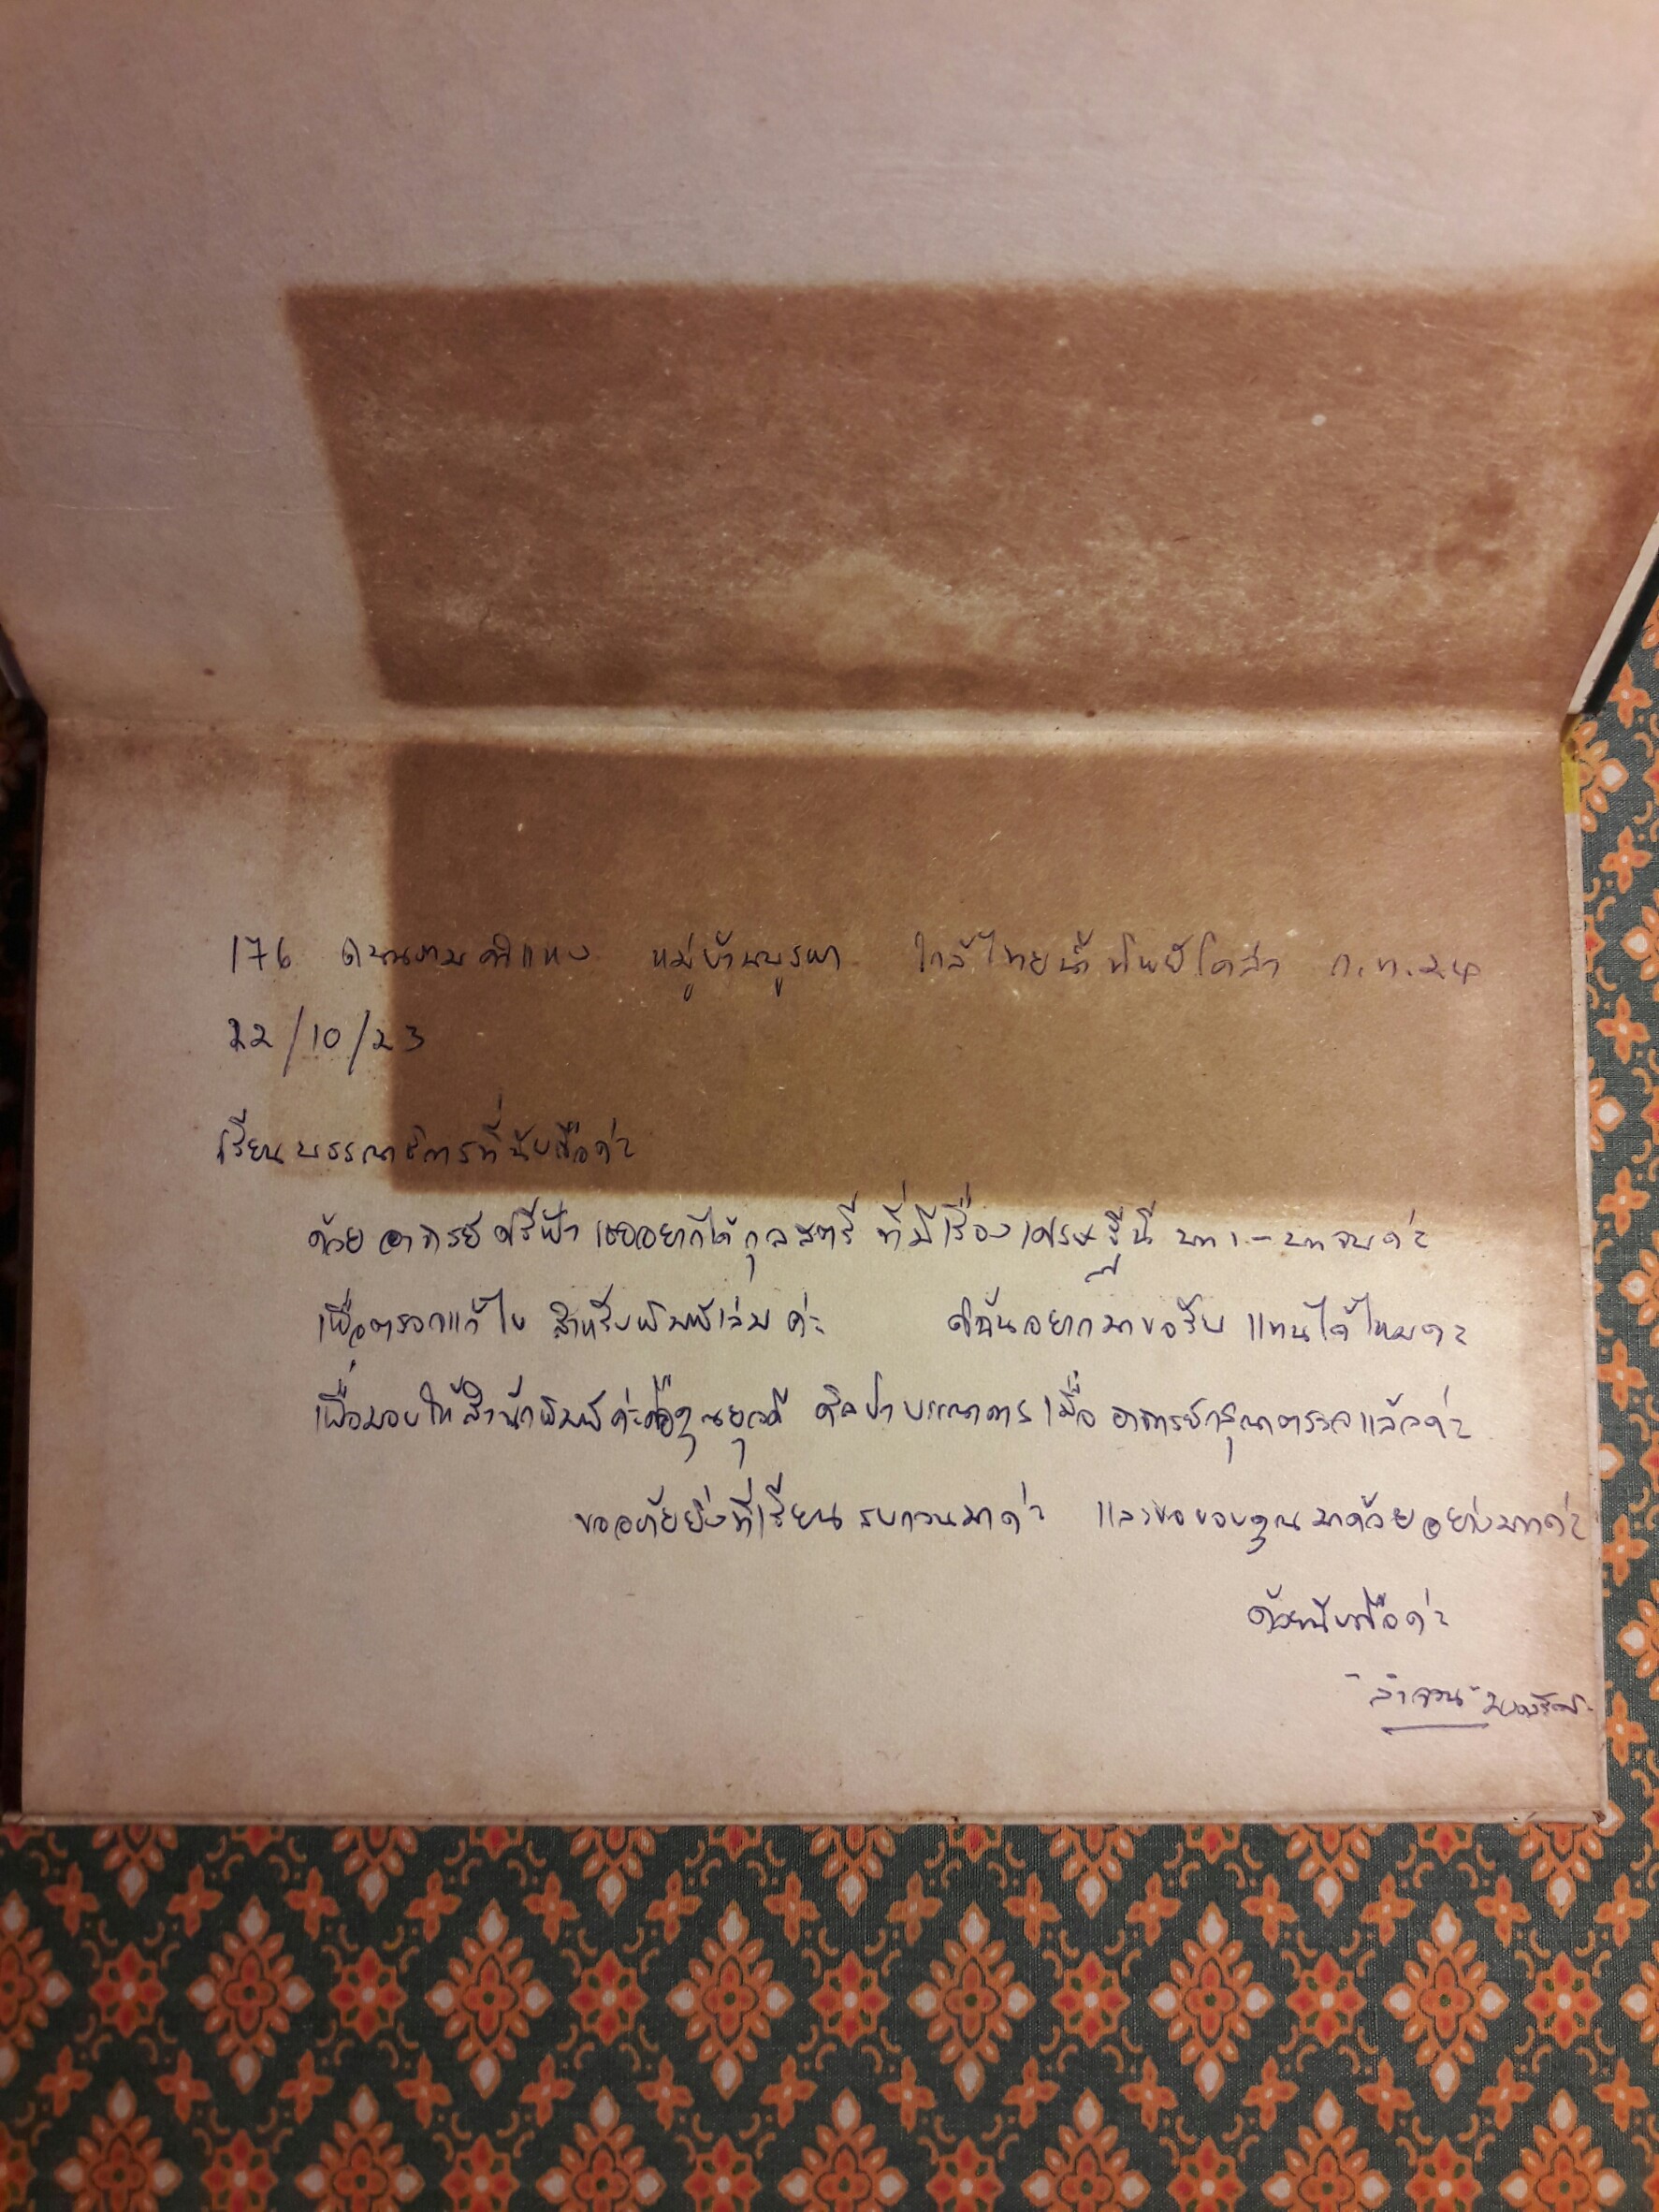 176 ถนนรามคำแหง หมู่บ้านบูรพา ใกล้ไทยน้ำทิพย์โคล่า ก.ท.ม. 24
22/10/23
เรียนบรรณาธิการที่นับถือค่ะ
ด้วย อาจารย์ศรีฟ้า เธออยากได้ กุลสตรี ที่มีเรื่อง เศรษฐีนี บท ๑ - บทจบค่ะ
เพื่อตรวจแก้ไข สำหรับพิมพ์เล่มค่ะ ดิฉันอยากมาขอรับ แทนได้ไหมคะ
เพื่อมอบให้สำนักพิมพ์ค่ะคือคุณยุวดี ศิลปาบรรณาคาร เมื่อ อาจารย์กรุณาตรวจแล้วค่ะ
ขออภัยยิ่งที่เรียน รบกวนมาค่ะ และขอขอบคุณ มาด้วยอย่างมากค่ะ
ด้วยนับถือค่ะ
"ลำจวน"